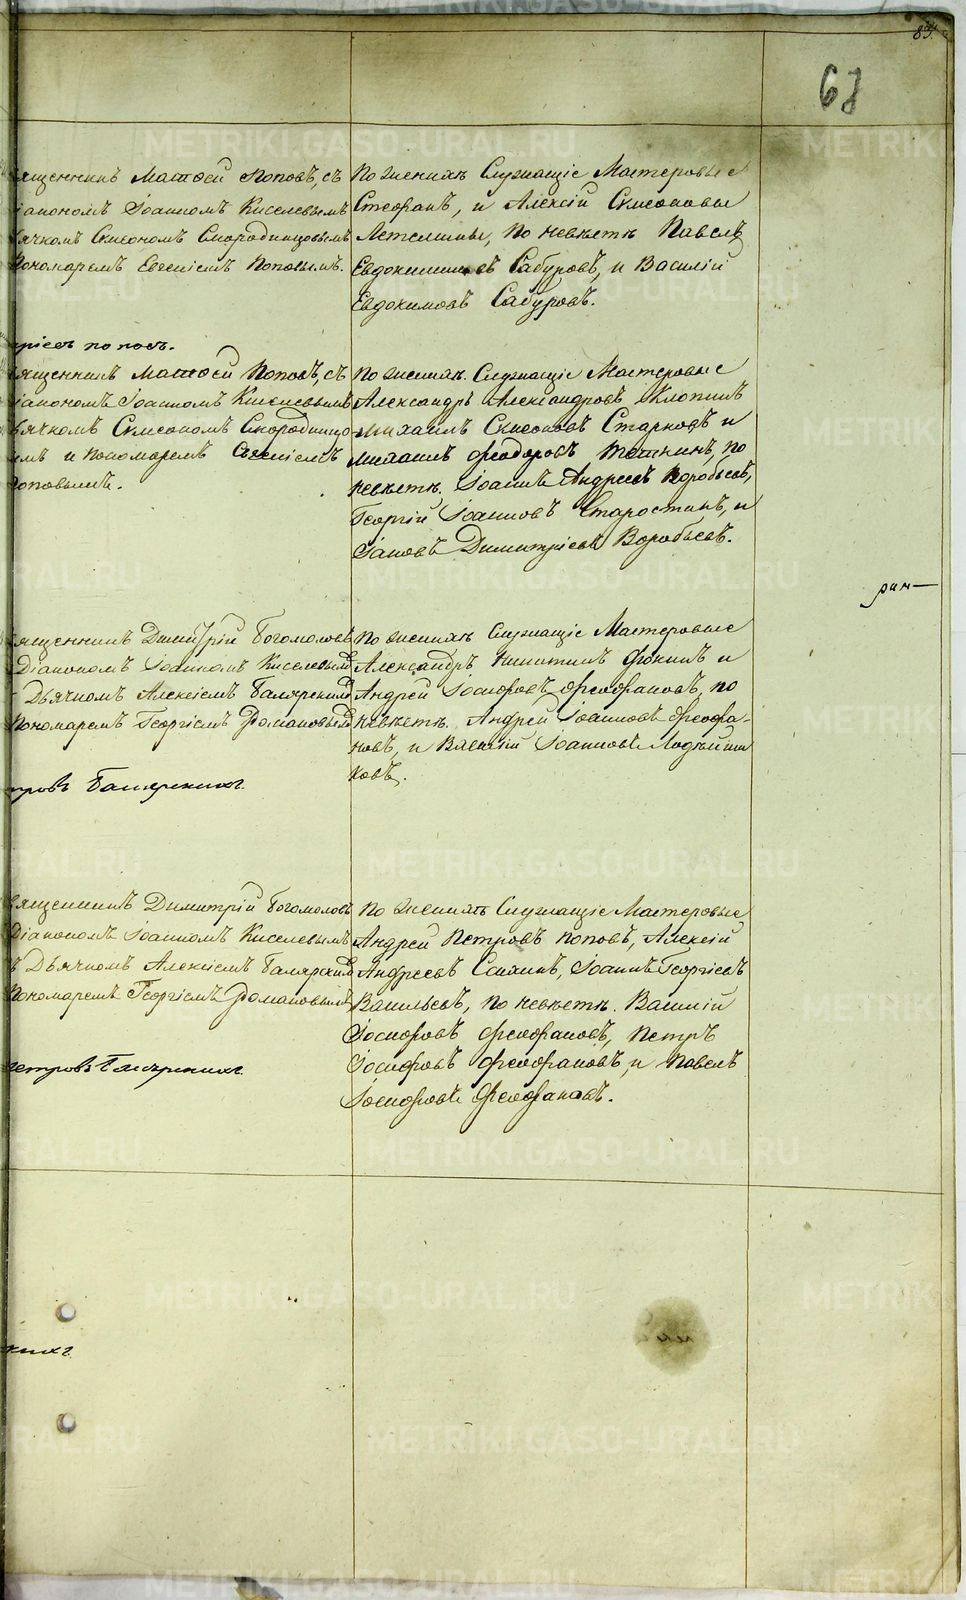 83.
67
METRIKI.GASO-URAL.RU
вященникъ Матѳей Поповъ, съ
іакономъ Іоанномъ Киселевымъ
ьячкомъ Симеономъ Смородинцовымъ
Пономаремъ Евгеніемъ Поповымъ.
По женихѣ Служащіе Мастеровые
Стефанъ, и Алексій Симеоновы
Летемины, по невѣстѣ Павелъ
Евдокимовъ Сабуровъ, и Василій
Евдокимовъ Сабуровъ.
вященникъ Матѳей Поповъ, съ
іакономъ Іоанномъ Киселевымъ
ьячкомъ Симеономъ Смородинцо-
ымъ и Пономаремъ Евгеніемъ
Поповымъ.
По женихѣ Служащіе Мастеровые
Александръ Александровъ Клопинъ
Михаилъ Симеоновъ Старковъ и
Михаилъ Ѳеодоровъ, по
невѣстѣ. Іоаннъ Андреевъ Воробьевъ,
Георгій Іоанновъ Старостинъ, и
Іаковъ Димитріевъ Воробьевъ.
вященникъ Димитрій Богомоловъ
Діакономъ Іоанномъ Киселевымъ
Дьячкомъ Алексіемъ Баляркинымъ
Пономаремъ Георгіемъ Романовымъ
По женихѣ Служащіе Мастеровые
Александръ Никитинъ Фокинъ и
Андрей Іосифовъ Ѳеофановъ, по
невѣстѣ. Андрей Іоанновъ Ѳеофа-
новъ, и Іоанновъ
ковъ.
вященникъ Димитрій Богомоловъ
Діакономъ Іоанномъ Киселевымъ
ъ Дьячкомъ Алексіемъ Баляркинымъ
Пономаремъ Георгіемъ Романовымъ
По женихѣ Служащіе Мастеровые
Андрей Петровъ Поповъ, Алексій
Андреевъ, Іоаннъ Георгіевъ
Васильевъ, по невѣстѣ. Василій
Іосифовъ Ѳеофановъ, Петръ
Іосифовъ Ѳеофановъ, и Павелъ
Іосифовъ Ѳеофановъ.